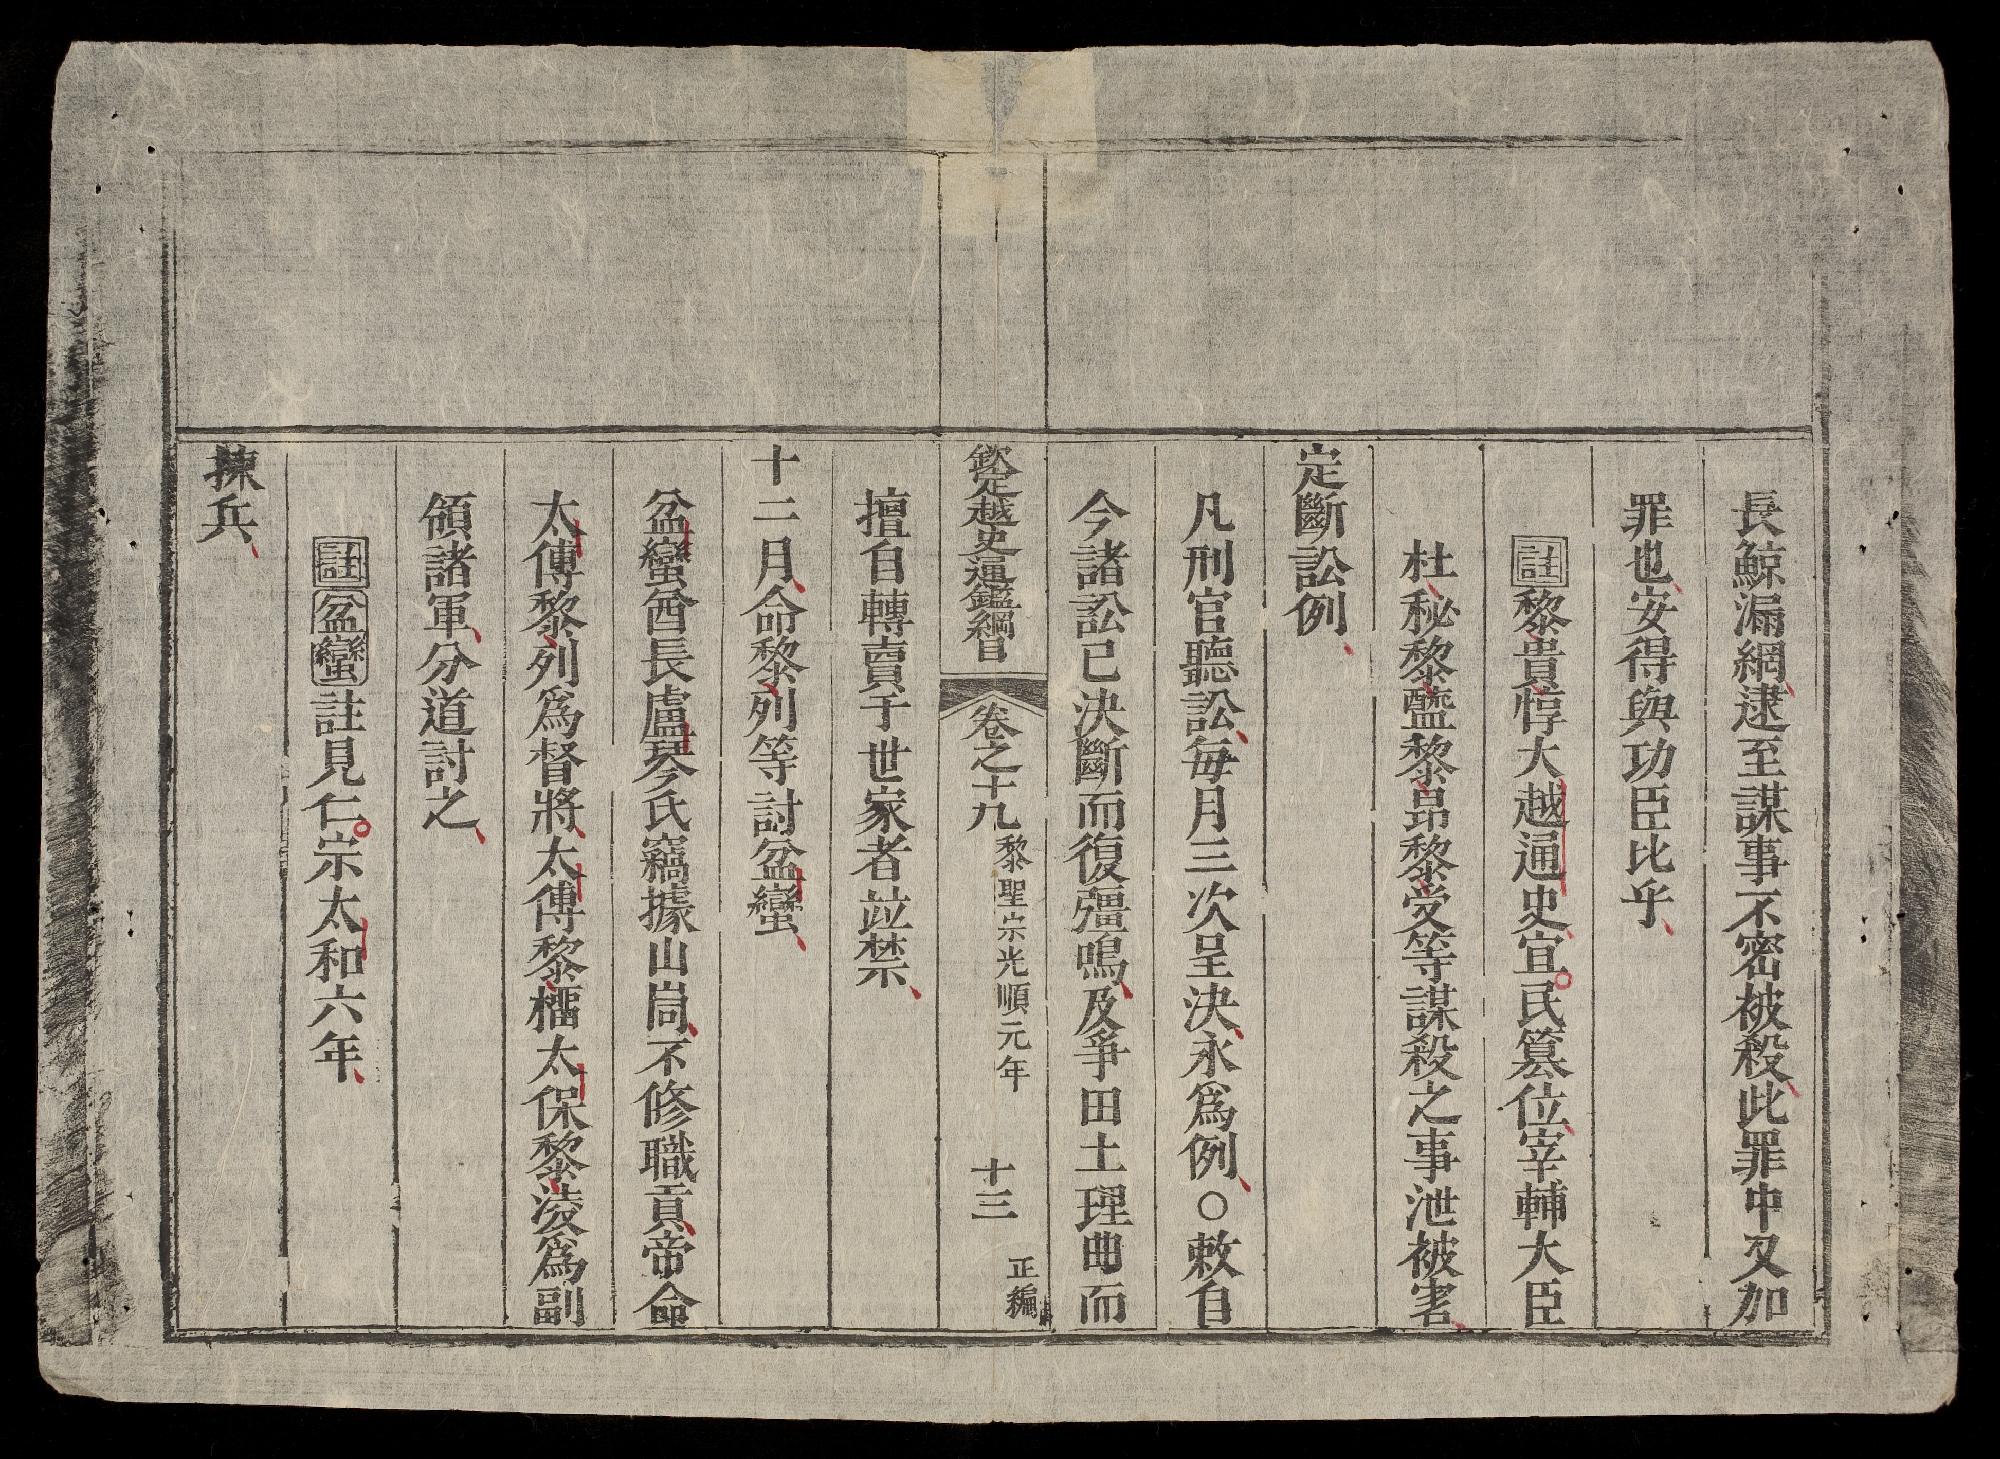 長鯨漏網逮至謀事不密被殺此罪中又加
罪也安得與功臣比乎
註黎貴惇大越通史宜民篡位宰輔大臣
杜秘黎𥂁黎昂黎受等謀殺之事泄被害
定斷訟例
凡刑官聽訟每月三次呈決永爲例○敕自
今諸訟已決斷而復彊鳴及爭田土理曲而
欽定越史通鑑綱目
卷之十九
黎聖宗光順元年
十三
正編
擅自轉賣于世家者竝禁
十二月命黎列等討盆蠻
盆蠻酋長盧琴氏竊據山峝不修職貢帝命
太傅黎列爲督將太傅黎榴太保黎淩爲副
領諸軍分道討之
註盆蠻註見仁宗太和六年
揀兵